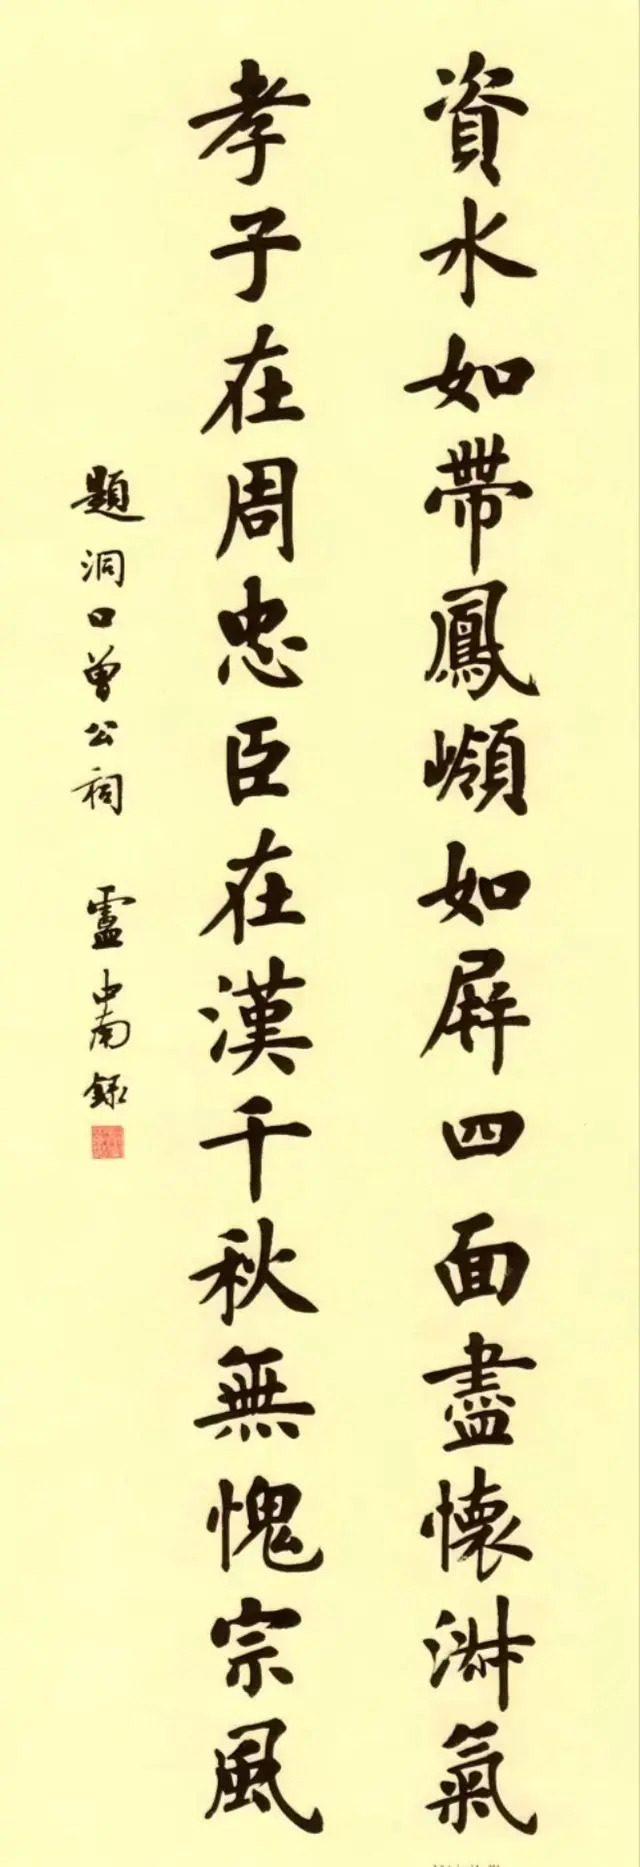 資水如帶鳳嶺如屏四面盡懷氣
孝子在周忠臣在漢千秋無愧宗風
題洞口曾公祠 盧中南錄